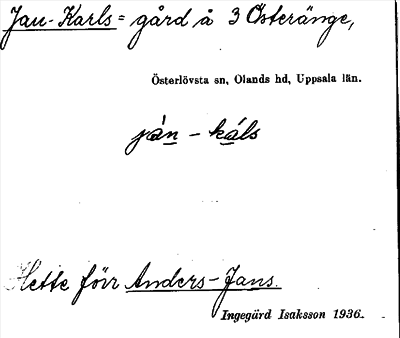 Jan-Karls = gård å 3 Österänge,
Österlövsta sn, Olands hd, Uppsala län.
ján - káls
Hette förr Anders-Jans.
Ingegärd Isaksson 1936.